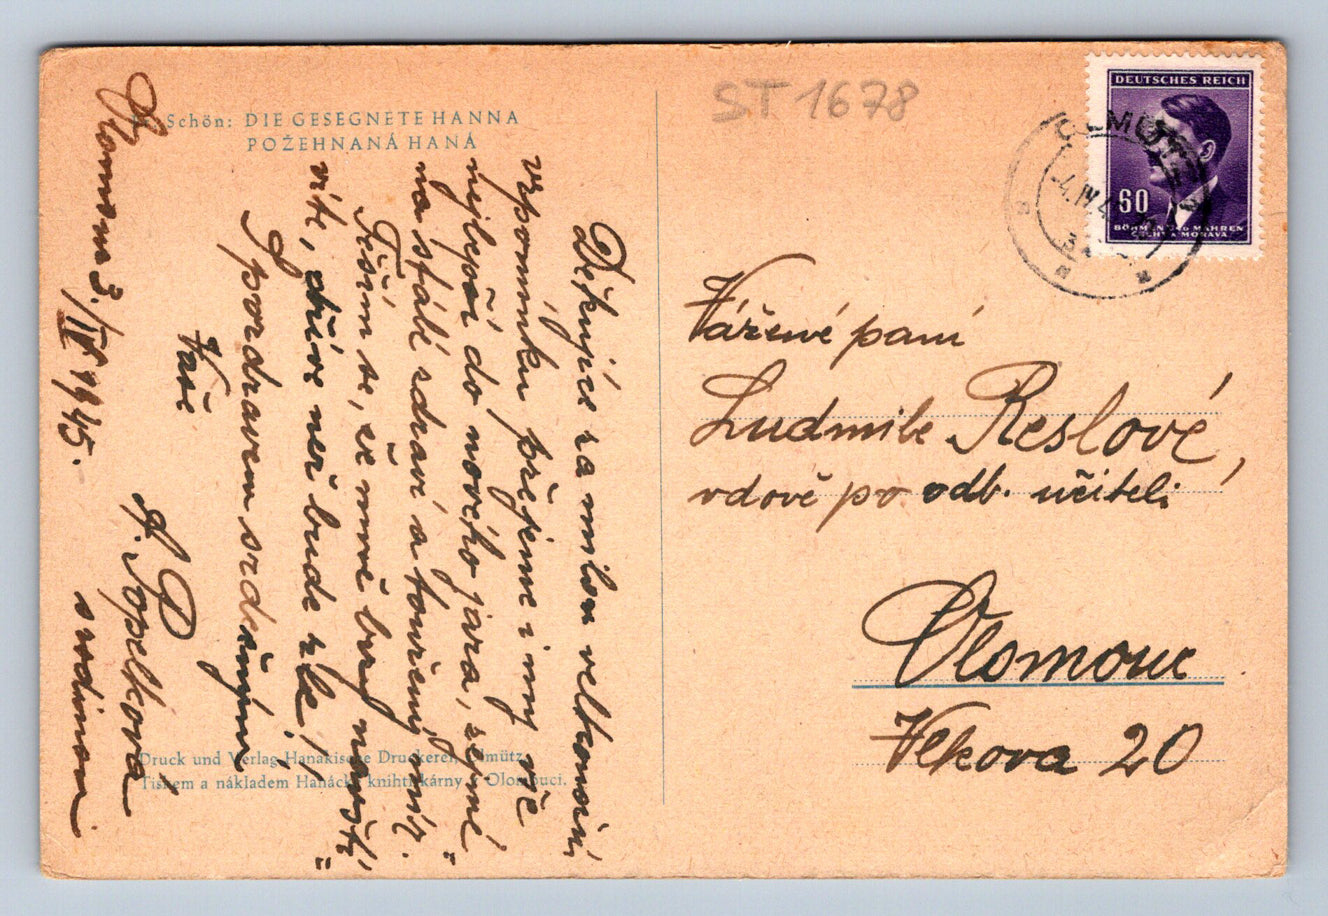 Schön: DIE GESEGNETE HANNA
POŽEHNANÁ HANÁ
ST 1678
DEUTSCHES REICH
60
BÖHMEN UND MÄHREN
ČECHY A MORAVA
OLMÜTZ
4. IV. 4
Olomouc 3./IV 1945.
Děkujíce za milou velkonoční
vzpomínku přejeme i my vše
nejlepší do nového jara, zejmé=
na stálé zdraví a
Těším se, že mně brzy navští=
víte, dříve než bude zle!
S pozdravem srdečným
Vaše
A. Popelková
s rodinou.
Vážené paní
Ludmile Reslové,
vdově po odb. učiteli
Olomouc
20
Druck und Verlag Hanakische Druckerei, Olmütz.
Tiskem a nákladem Hanácké knihtiskárny v Olomouci.